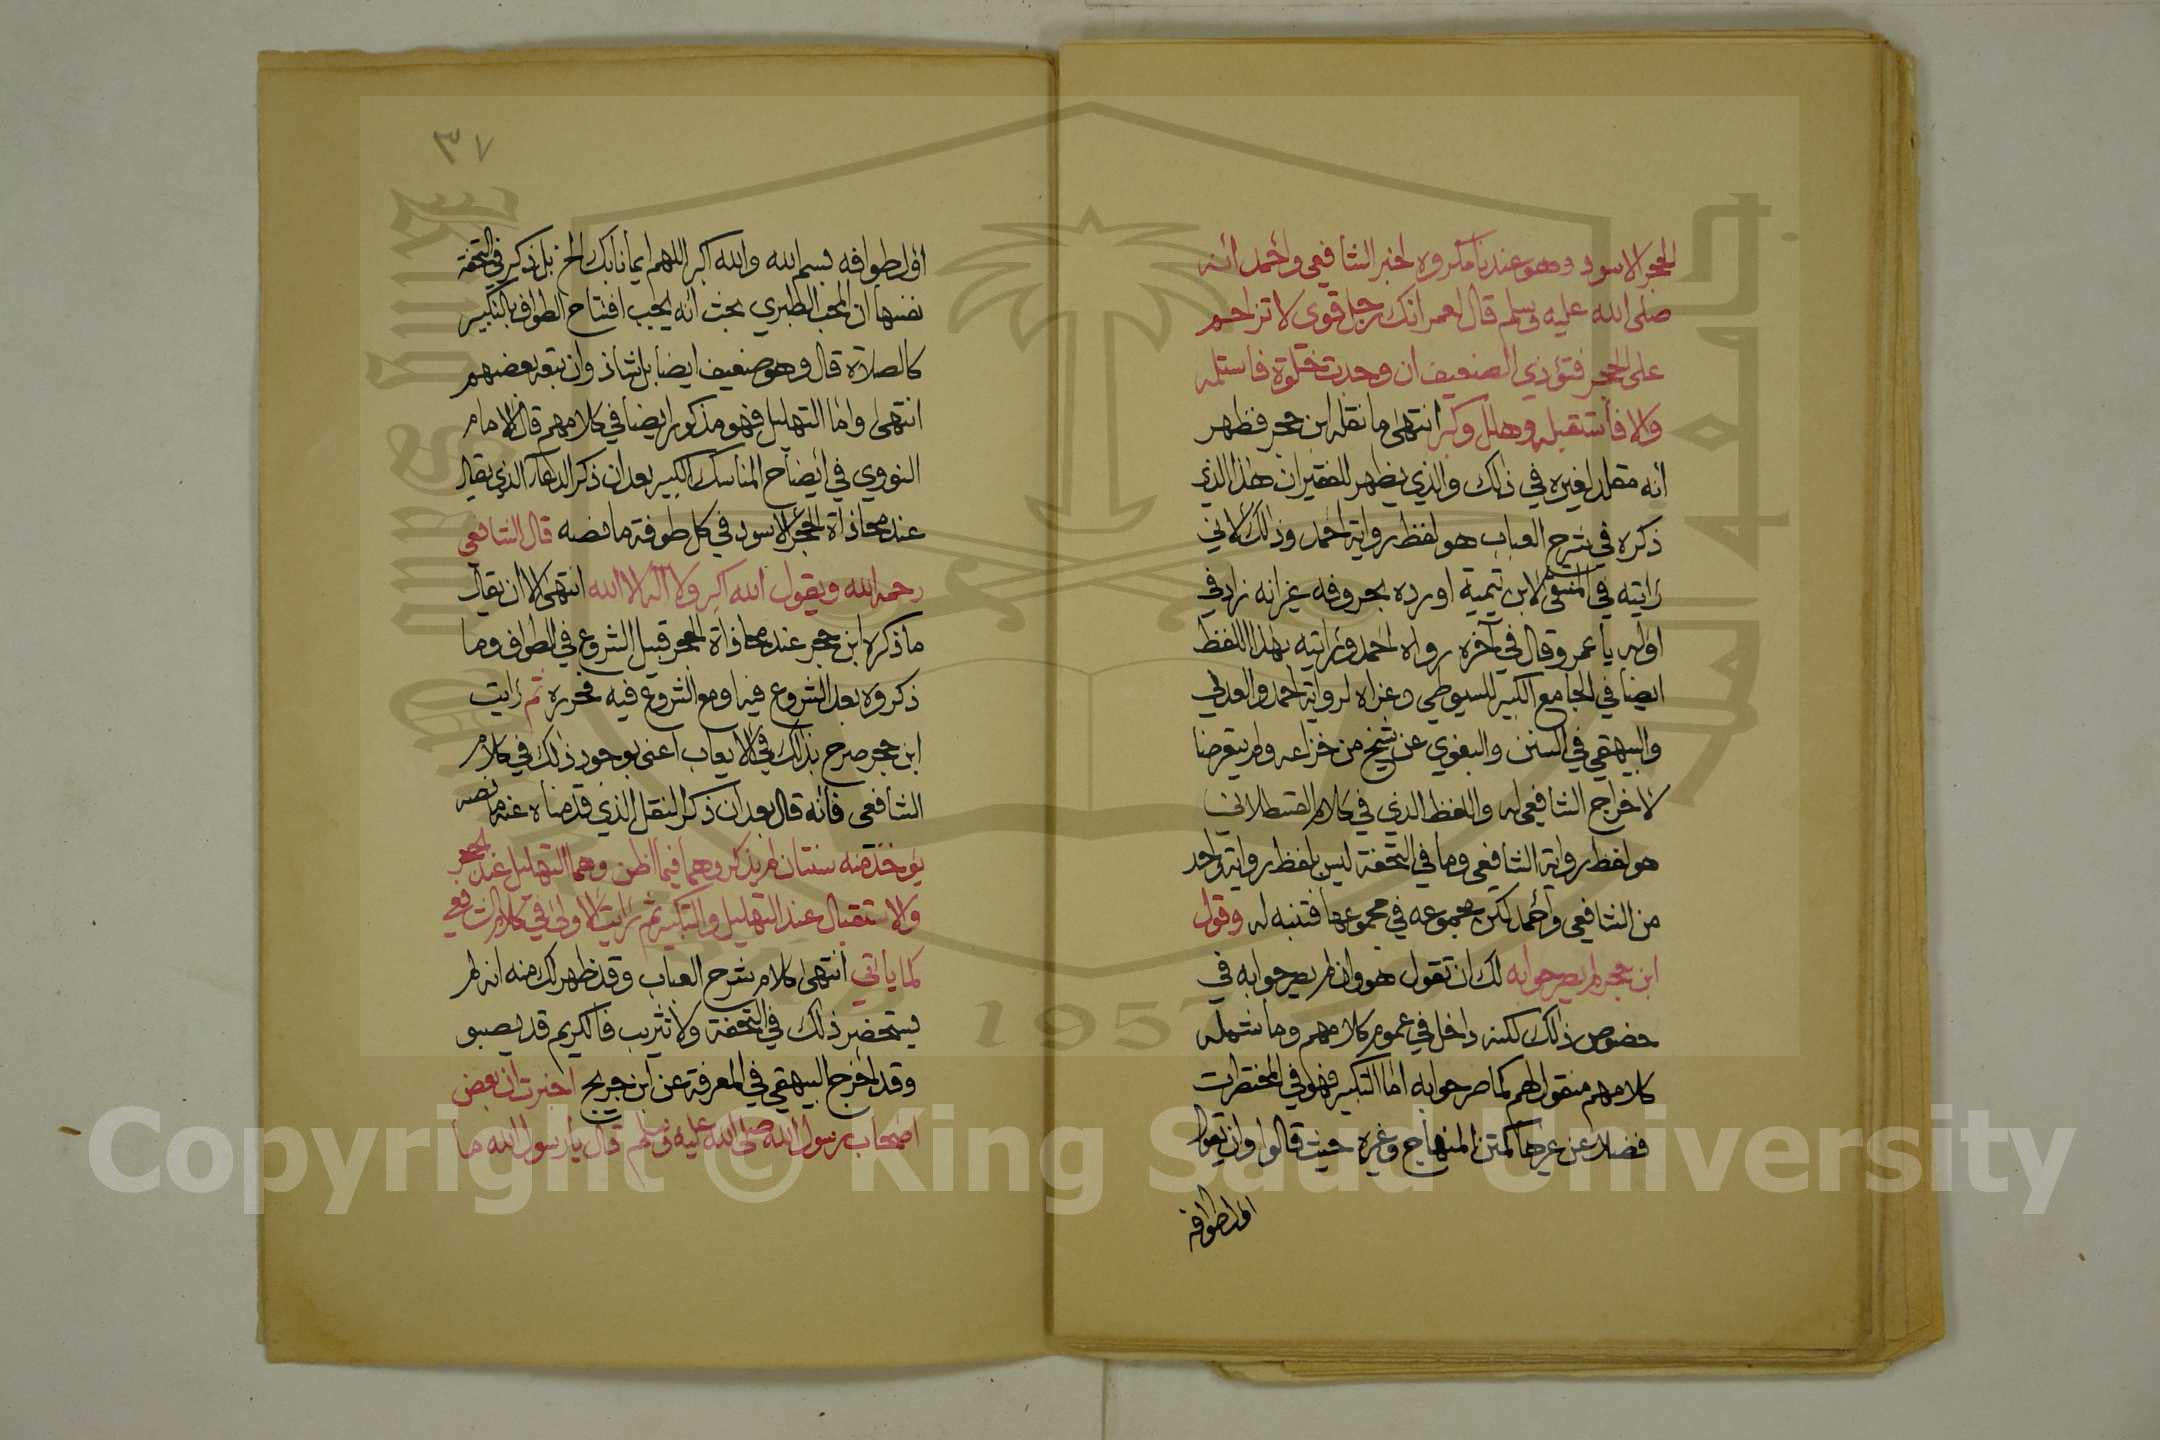 الحجر الاسود وهو عندنا مكروه لخبر الشافعي واحمد انه
صلى الله عليه وسلم قال لعمر انك رجل قوى لا تزاحم
على الحجر فتؤذي الضعيف ان وجدت خلوة فاستلمه
والا فاستقبله وهلل وكبر انتهى ما نقله ابن حجر فظهر
انه مقلد لغيره في ذلك والذي يظهر للفقير ان هذا الذي
ذكره في شرح العباب هو لفظ رواية احمد وذلك لاني
رايته في المنتقى لابن تيمية اورده بحروفه غير انه زاد في
اوله يا عمر وقال في آخره رواه احمد ورايته بهذا اللفظ
ايضا في الجامع الكبير للسيوطي وعزاه لرواية احمد والعدني
والبيهقي في السنن والبغوي عن شيخ من خزاعه ولم يتعرضا
لاخراج الشافعي له واللفظ الذي في كلام القسطلاني
هو لفظ رواية الشافعي وما في التحفة ليس بلفظ رواية واحد
من الشافعي واحمد لكن مجموعه في مجموعها فتنبه له وقول
ابن حجر لم يصرحوا به لك ان تقول هو وان لم يصرحوا به في
خصوص ذلك لكنه داخل في عموم كلامهم وما شمله
كلامهم منقول لهم كما صرحوا به اما التكبير فهو في المختصرات
فضلا عن غيرها كمتن المنهاج وغيره حيث قالوا وان يقول
اول طوافه
٣٧
اول طوافه بسم الله والله اكبر اللهم ايمانا بك الخ بل ذكر في التحفة
نفسها ان المحب الطبري بحث انه يجب افتتاح الطواف بالتكبير
كالصلاة قال وهو ضعيف ايضا بل شاذ وان تبعه بعضهم
انتهى واما التهليل فهو مذكور ايضا في كلامهم قال الامام
النووي في ايضاح المناسك الكبير بعد ان ذكر الدعاء الذي يقال
عند محاذاة الحجر الاسود في كل طوفة ما نصه قال الشافعي
رحمه الله ويقول الله اكبر ولا اله الا الله انتهى الا ان يقال
ما ذكره ابن حجر عند محاذاة الحجر قبيل الشروع في الطواف وما
ذكروه بعد الشروع فيه او مع الشروع فيه فحرره ثم رايت
ابن حجر صرح بذلك في الايعاب اعنى بوجود ذلك في كلام
الشافعي فانه قال بعد ان ذكر النقل الذي قدمناه عنه ما نصه
يؤخذ منه سنتان لم يذكروهما فيما اظن وهما التهليل عند الحجر
والاستقبال عند التهليل والتكبير ثم رايت الاولى في كلام الشافعي
كما ياتي انتهى كلام شرح العباب وقد ظهر لك منه انه لم
يستحضر ذلك في التحفة ولا تثريب فالكريم قد يصبو
وقد اخرج البيهقي في المعرفة عن ابن جريج اخبرت ان بعض
اصحاب رسول الله صلى الله عليه وسلم قال يا رسول الله ما
Copyright © King Saud University
1957